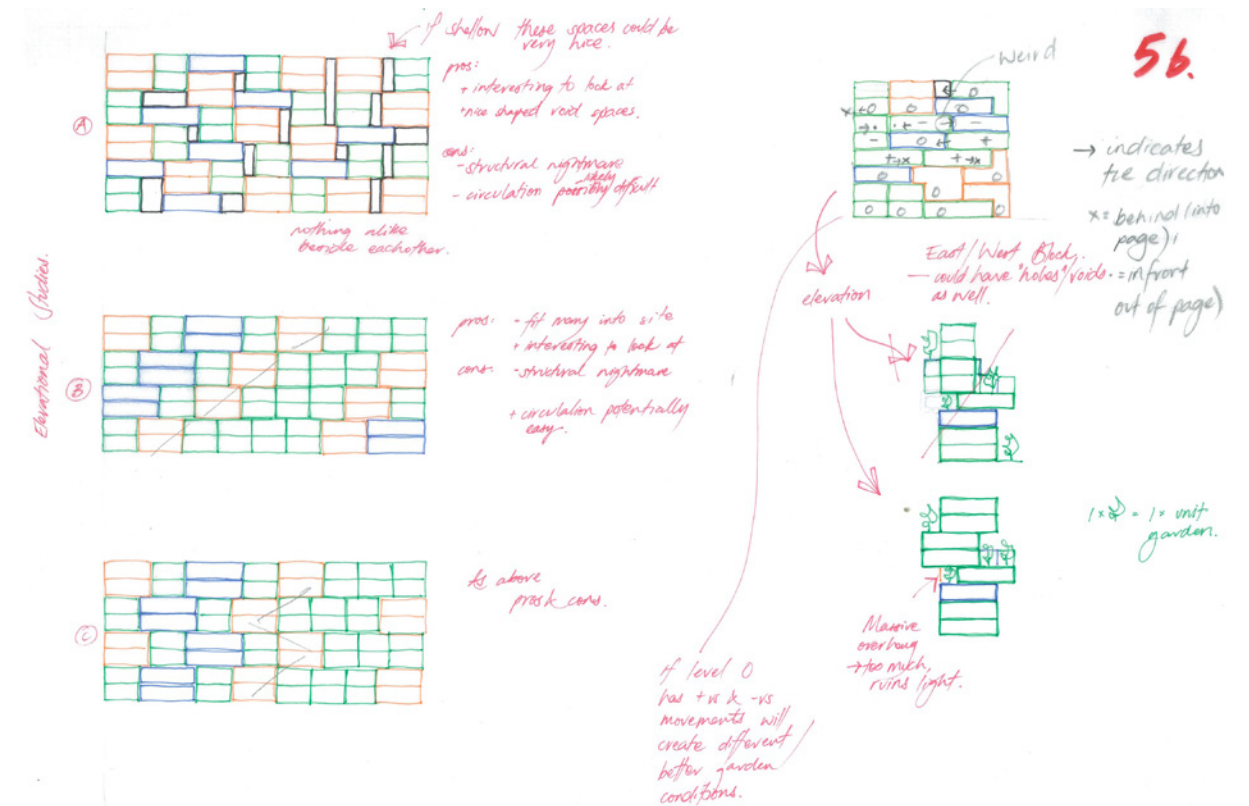 5b.
Elevational Studies.
if shallow these spaces could be
very nice.
A
pros:
+ interesting to look at
+ nice shaped void spaces.
cons:
- structural nightmare
likely
- circulation possibly difficult
nothing alike
beside eachother.
B
pros: - fit many into site
+ interesting to look at
cons: - structural nightmare
+ circulation potentially
easy.
C
As above
pros & cons.
weird
→ indicates
the direction
x = behind (into
page);
· = in front
out of page)
East/West Block.
— could have "holes"/voids
as well.
elevation
1 x = 1 x unit
garden.
Massive
overhang
→ too much,
ruins light.
if level 0
has +vs & -vs
movements will
create different/
better garden
conditions.